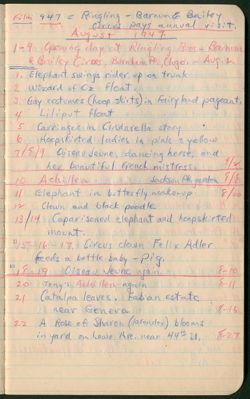 Film 947 = Ringling - Barnum & Bailey
Circus pays annual visit.
August 1947
1-9 Opening day of Ringling Bros & Barnum
& Bailey Circus, Burnham Pk, Chgo. - Aug. 2
1. Elephant swings rider up on trunk
2 Wizard of Oz Float
3 Gay costumes (hoop skirts) in Fairyland pageant
4 Liliput Float
5 Carriage in Cinderella story
6 Hoopskirted ladies in pink & yellow
7/8/9. Cisee Jeune, dancing horse, and
her beautiful French mistress
10 Achilles Jackson Pk garden 8/8
11 Elephant in butterfly make-up
12 Clown and black poodle
13/14 Caparisoned elephant and hoopskirted
mount.
15-16-17. Circus clown Felix Adler
feeds a bottle baby - pig.
18 & 19 again 8-10
20 again 8-11
21 Catalpa leaves. Fabian estate
near Geneva 8-16
22 A Rose of Sharon (lavender) blooms
in yard on Lake Ave. near 44th St. 8-23